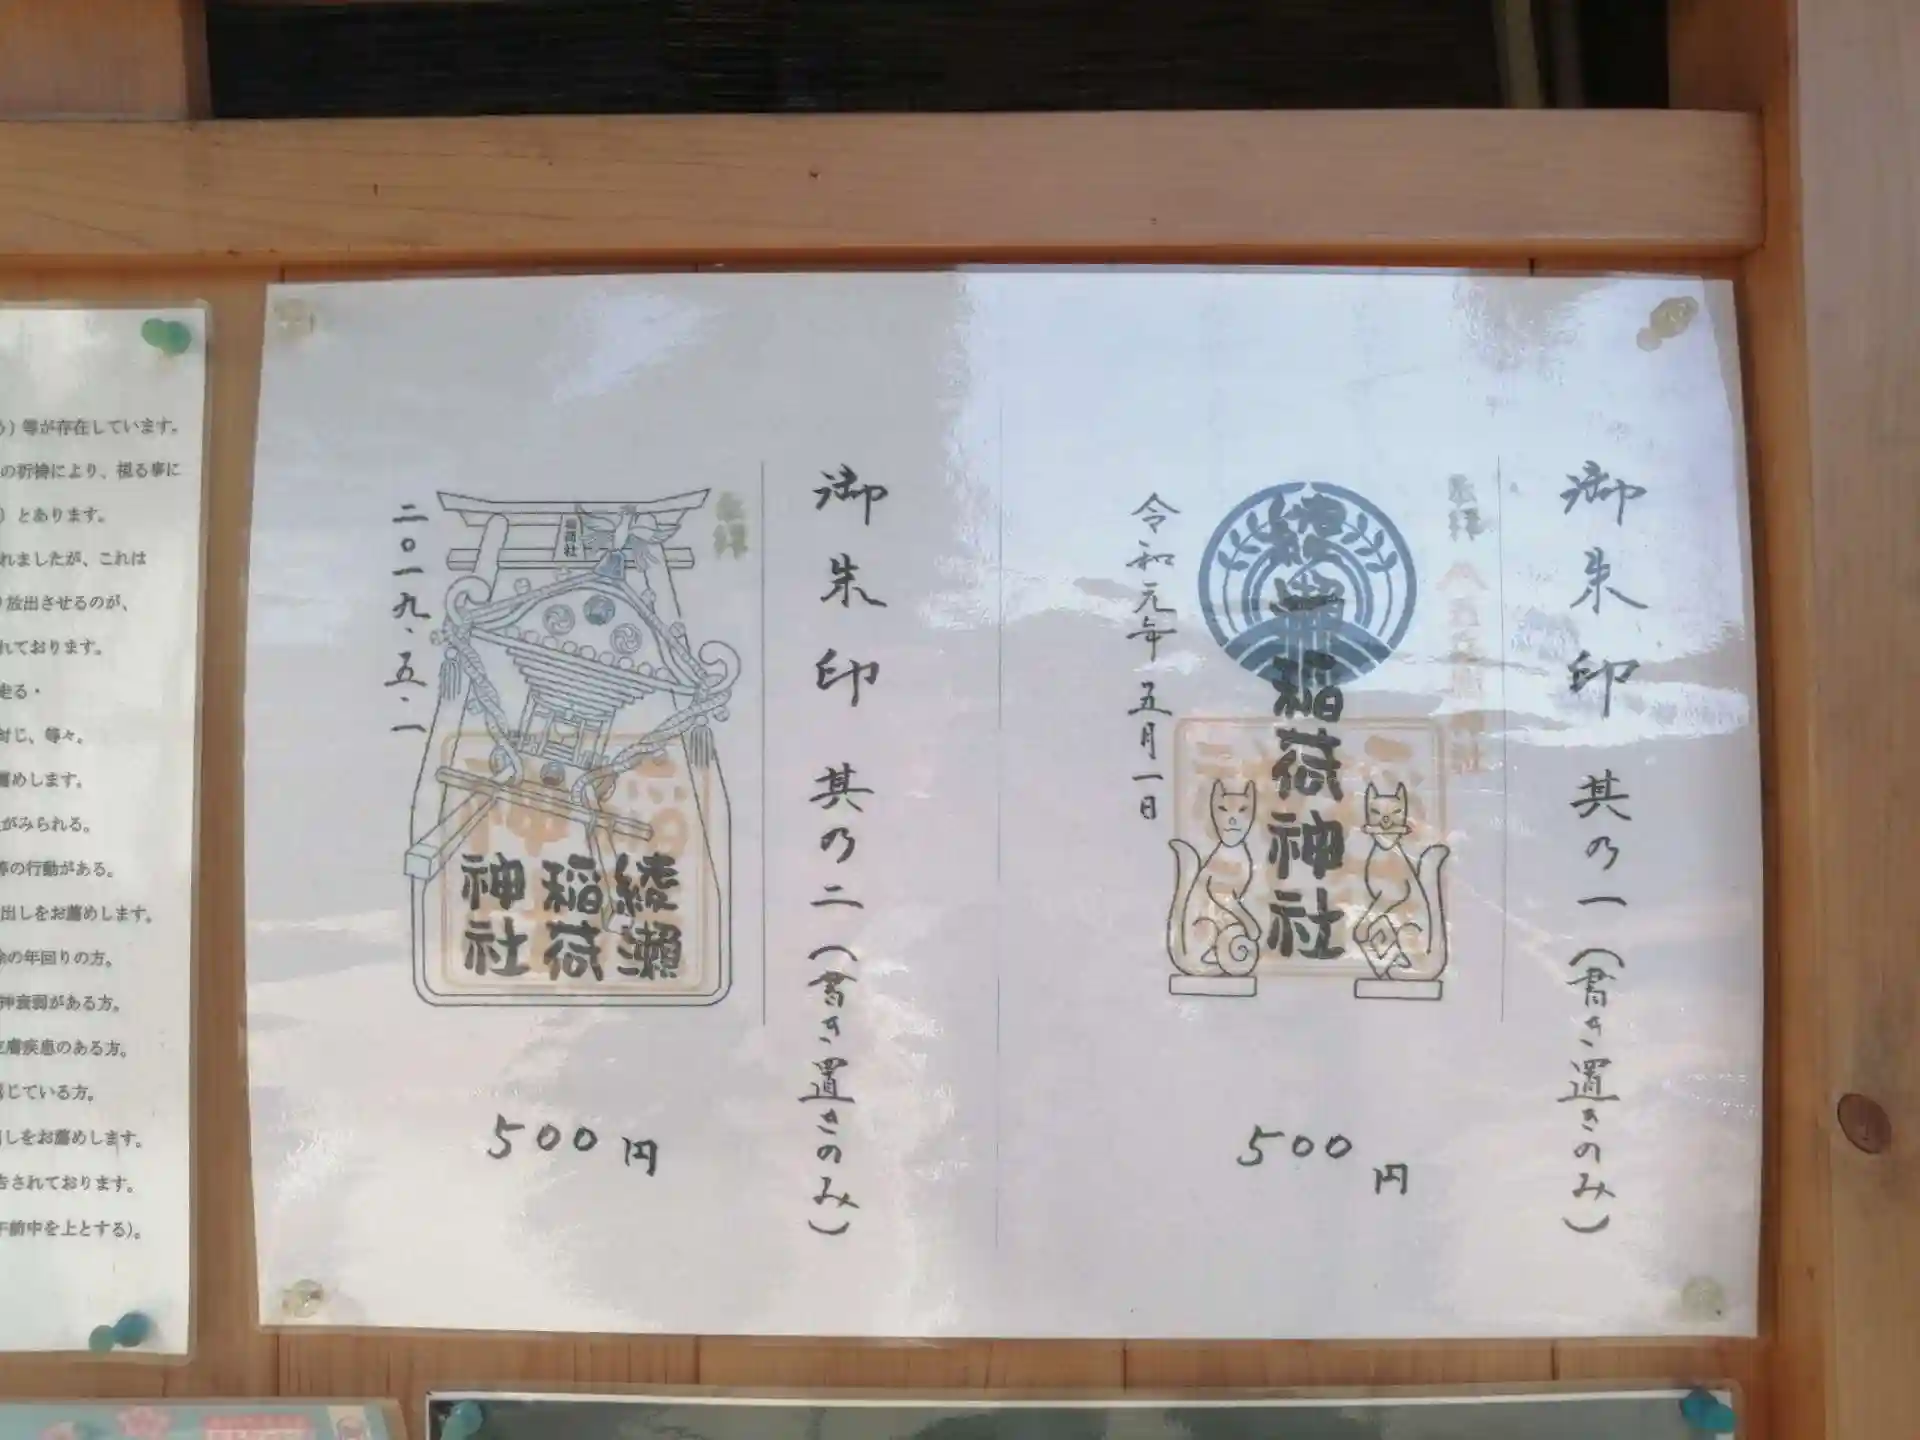 御朱印 其の一 (書き置きのみ)
奉拝
稲荷神社
令和元年 五月一日
500円
御朱印 其の二 (書き置きのみ)
奉拝
稲荷社
綾瀬
稲荷
神社
二〇一九.五.一
500円
等が存在しています。
の祈祷により、視る事に
とあります。
れましたが、これは
放出させるのが、
れております。
走る・
封じ、等々。
薦めします。
がみられる。
等の行動がある。
出しをお薦めします。
の年回りの方。
神衰弱がある方。
皮膚疾患のある方。
感じている方。
しをお薦めします。
告されております。
午前中を上とする)。